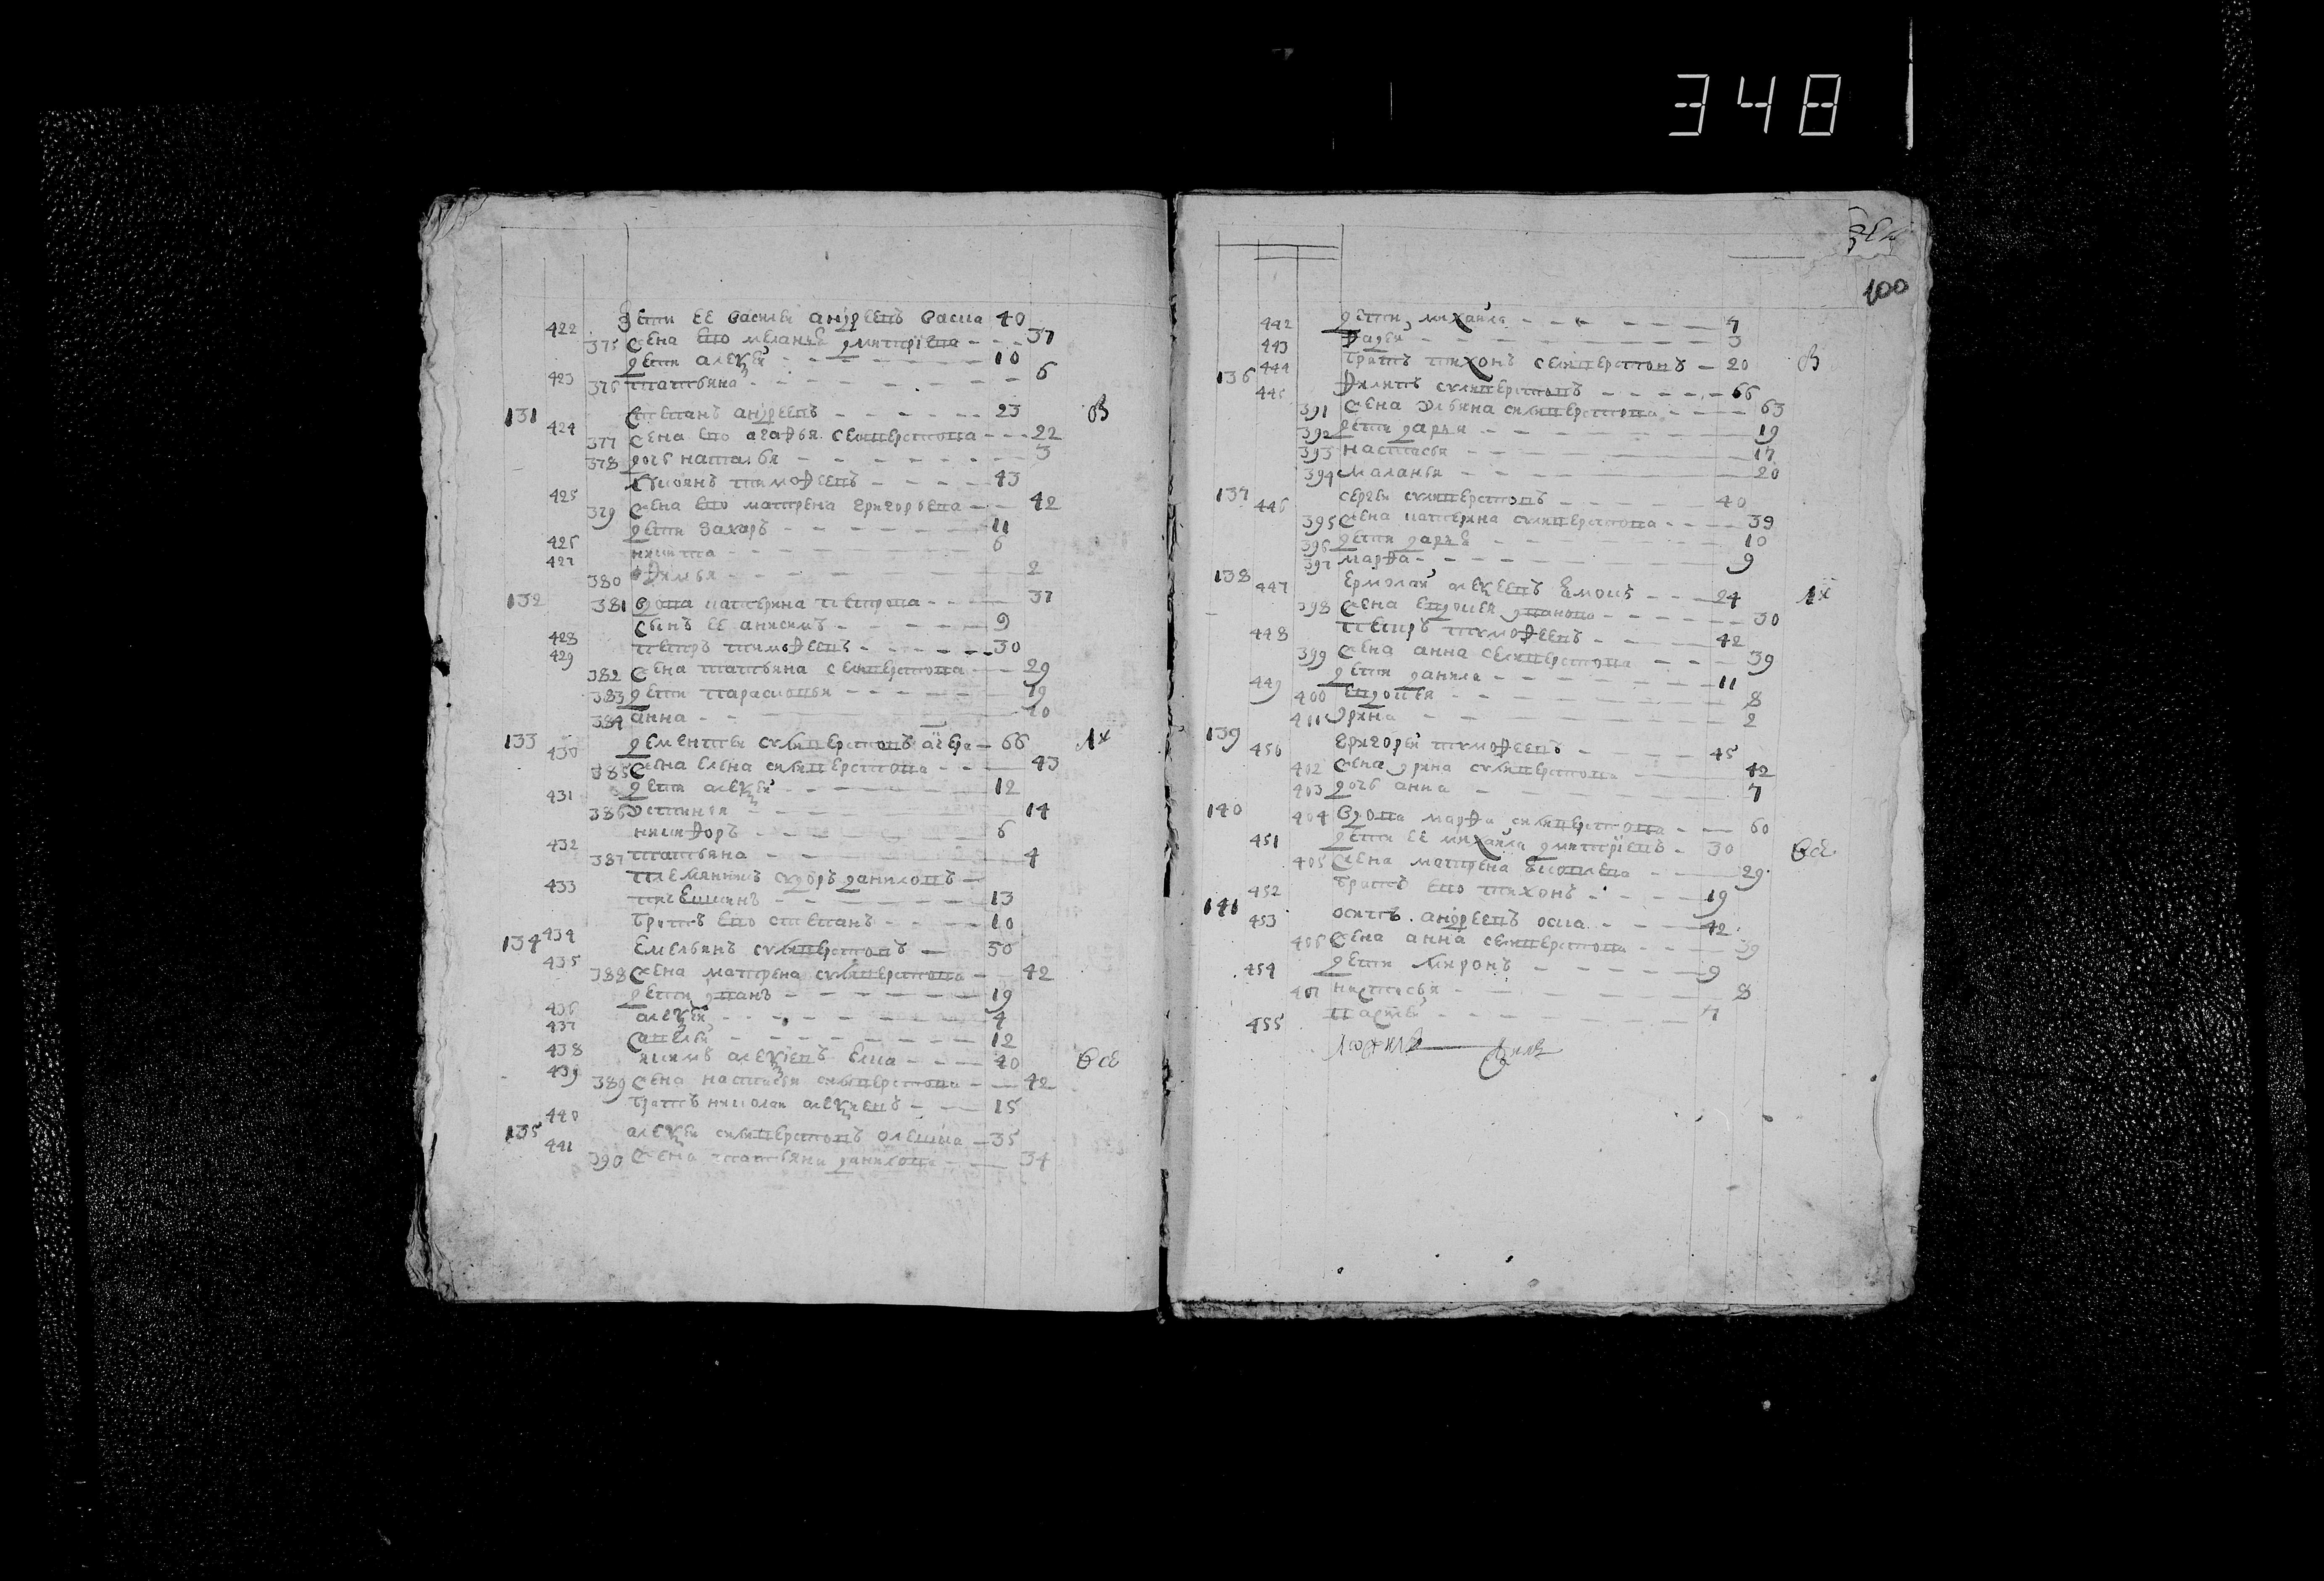 348
422 дети ее василеи андреевъ васка 40
375 жена ево меланья дмитрiева 37
дети алексей 10
423 376 татьяна 6
131 степанъ андреевъ 23 В
424 377 жена ево агафья селиверстова 22
378 дочь наталья 3
касиянъ тимофеевъ 43
425 379 жена ево матрена григорьева 42
дети захаръ 11
426 никита 6
427 380 афимья 2
132 381 вдова катерина петрова 37
сынъ ее анисимъ 9
428 петръ тимофеевъ 30
429 382 жена татьяна селиверстова 29
383 дети парасковья 19
384 анна 10
133 дементеи силиверстовъ 66
430 385 жена елена силиверстова 43
дети алексей 12
431 386 устинья 14
никифоръ 6
432 387 татьяна 4
племянникъ сидоръ даниловъ
433 13
братъ ево степанъ 10
134 434 емельянъ силиверстовъ 50
435 388 жена матрена силиверстова 42
дети иванъ 19
436 алексей 4
437 савелеи 12
438 якимъ алексiевъ 40 все
439 389 жена настасья силиверстова 42
братъ николаи алексиевъ 15
440
135 алексеи силиверстовъ олешка 35
441 390 жена татьяна данилова 34
100
442 дети михаила 7
443 фадеи 3
444 братъ тихонъ селиверстовъ 20 В
136 445 филипъ силиверстовъ 66
391 жена ульяна силиверстова 63
392 дети дарья 19
393 настасья 17
394 маланья 20
137 446 сергеи силиверстовъ 40
395 жена катерина силиверстова 39
396 дети дарья 10
397 марфа 9
138 447 ермолай алексеевъ 24
398 жена евдокея иванова 30
448 петръ тимофеевъ 42
399 жена анна селиверстова 39
449 дети данила 11
400 евдокея 8
401 ирина 2
139 450 григорей тимофеевъ 45
402 жена ирина силиверстова 42
403 дочь анна 7
140 404 вдова марфа силиверстова 60
451 дети ее михаила дмитрiевъ 30 все
405 жена матрена яковлева 29
452 братъ ево тихонъ 19
141 453 осипъ андреевъ оска 42
406 жена анна селиверстова 39
454 дети миронъ 9
407 настасья 8
455 василей 7